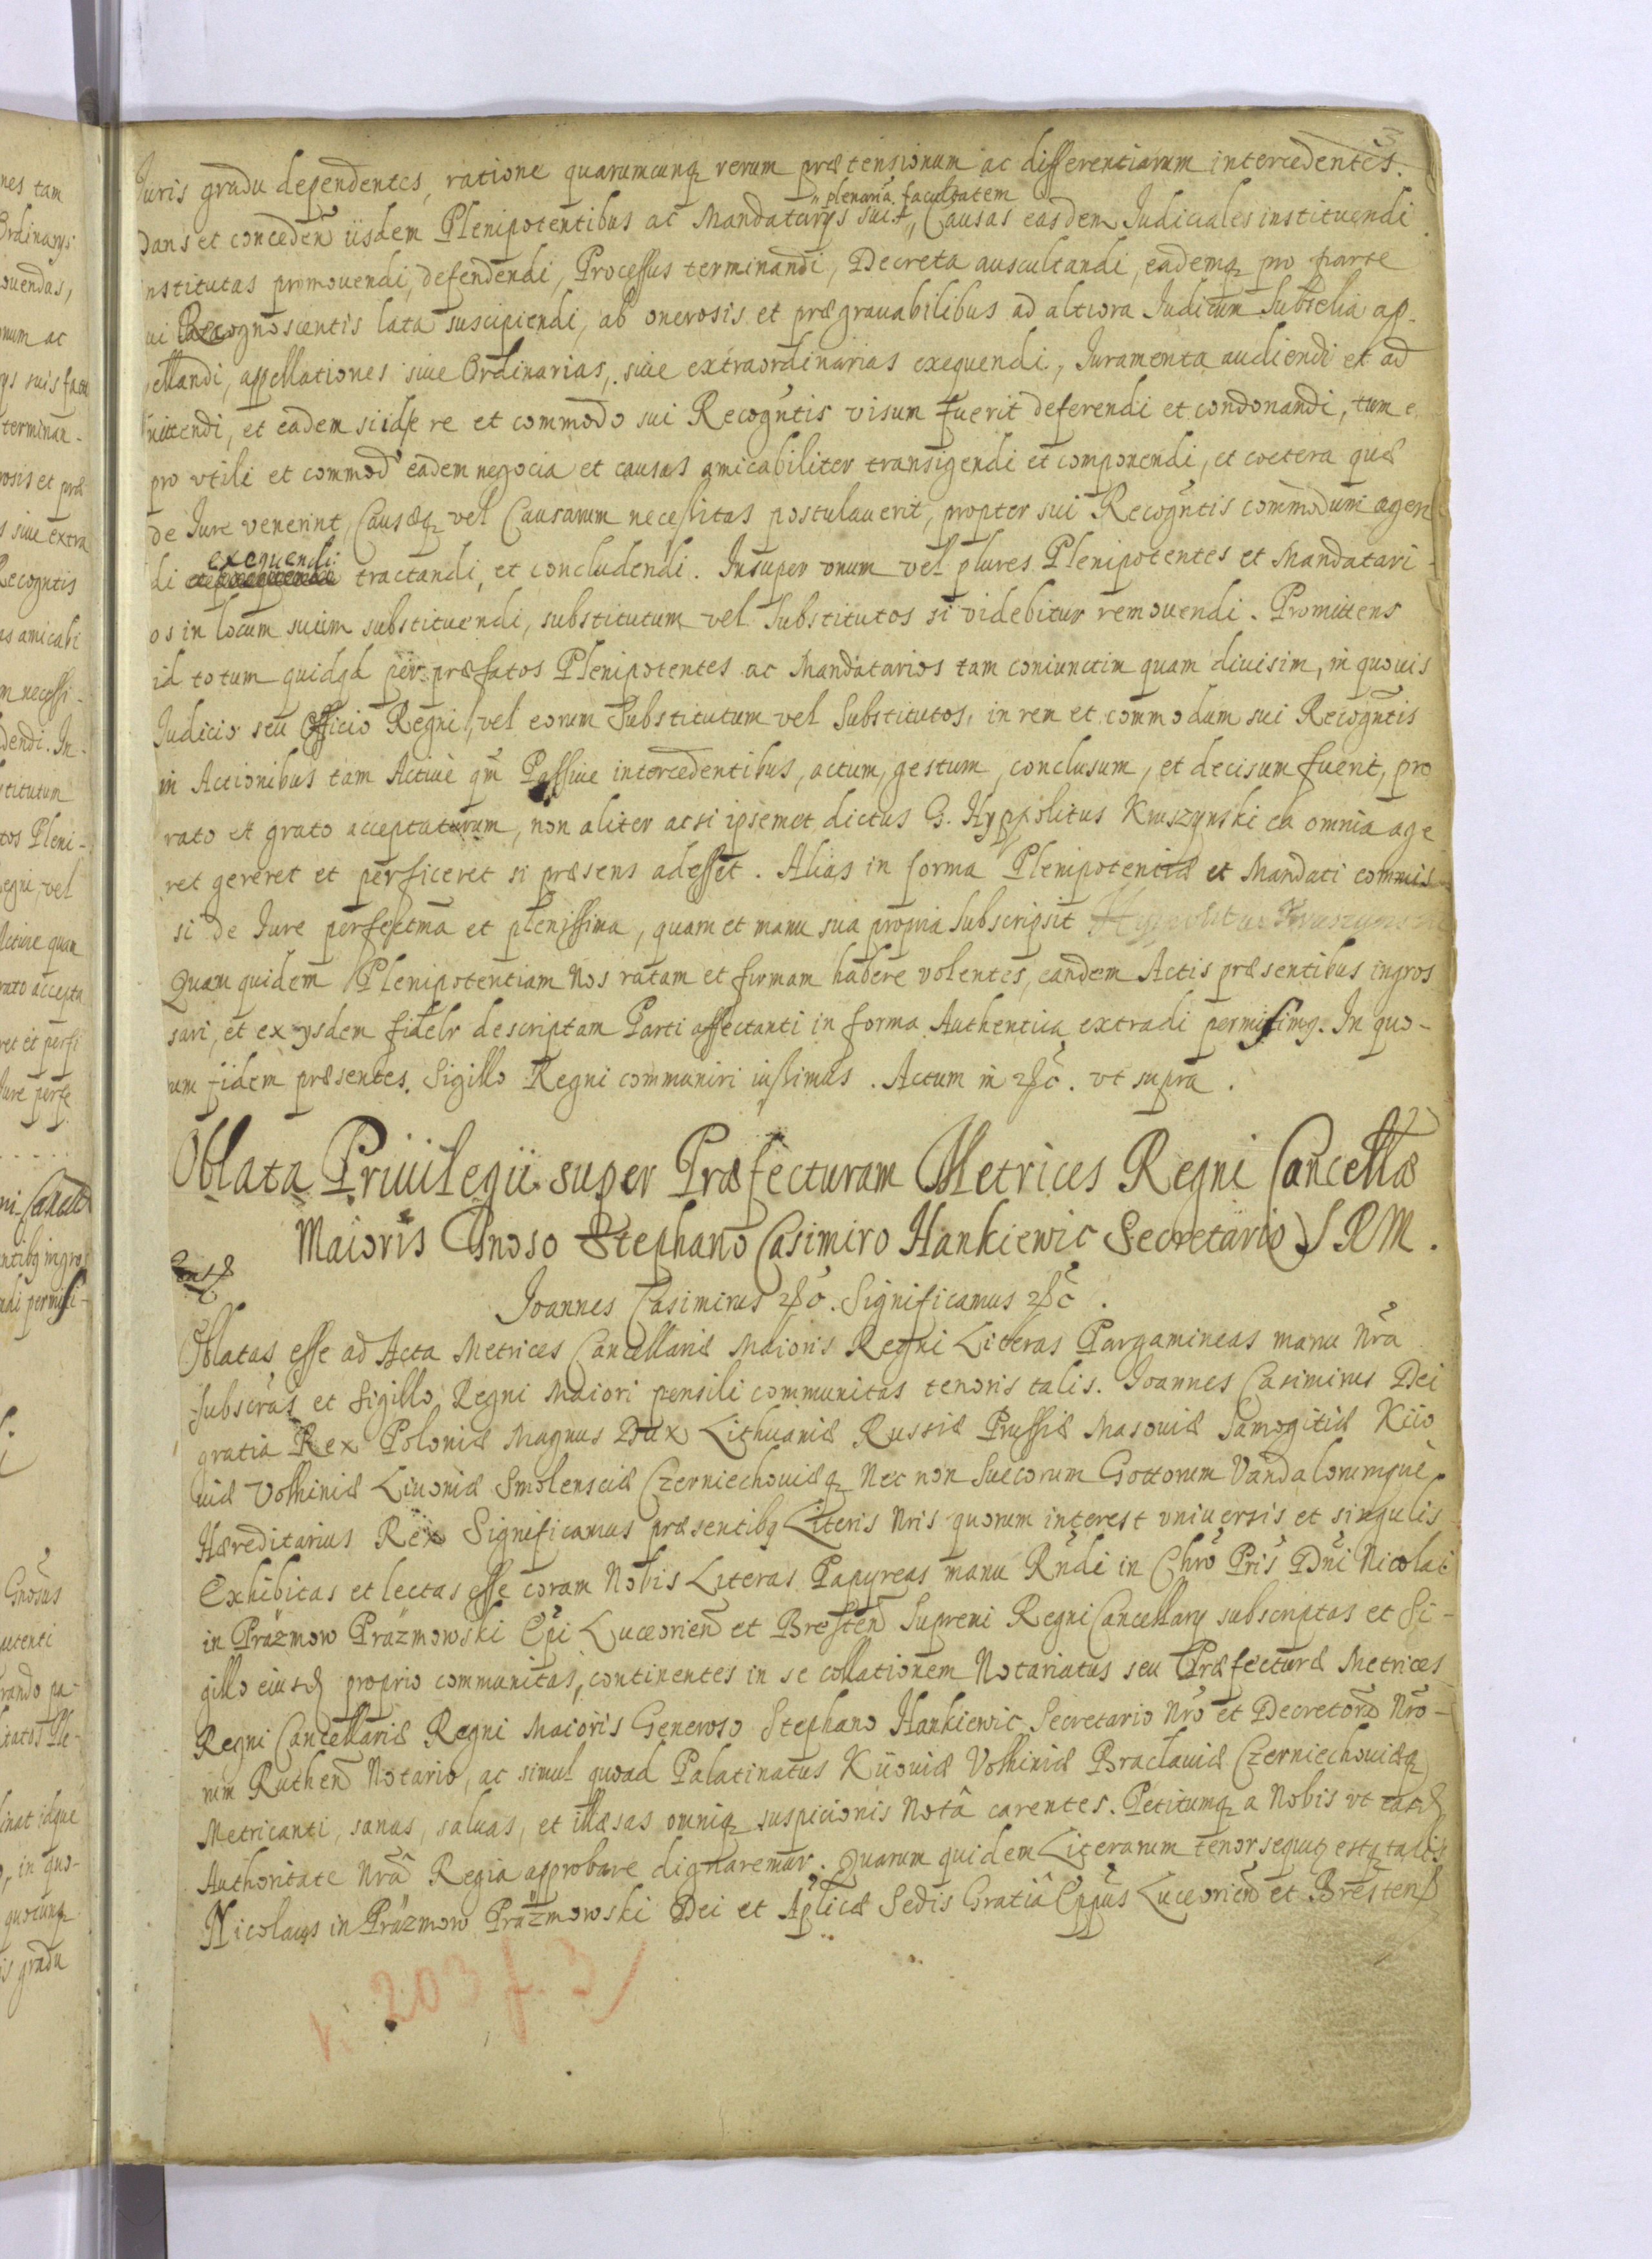 3
Iuris gradu dependentes, ratione quarumcunq rerum prætensionum ac differentiarum intercedentes.
plenariã facultatem
Dans et conceden̄ iisdem Plenipotentibus ac Mandatarijs suis, Causas easdem Iudiciales instituendi
institutas promouendi, defendendi, Processus terminandi, Decreta auscultandi, eademq pro parte
ui Recognoscentis lata suscipiendi, ab onerosis et prægrauabilibus ad altiora Iudicum Subselia ap-
ellandi, appellationes siue Ordinarias, siue extraordinarias exequendi, Iuramenta audiendi et ad
mittendi, et eadem si id re et commodo sui Recogntis visum fuerit deferendi et condonandi, tum e
pro vtili et commod eadem negocia et causas amicabiliter transigendi et componendi, et cœtera quæ
de Iure venerint, Causæq vel Causarum necessitas postulauerit, propter sui Recogñtis commodum agen
exequendi
di tractandi, et concludendi. Insuper vnum vel plures Plenipotentes et Mandatari-
os in locum suum substituendi, substitutum vel Substitutos si videbitur remouendi. Promittens
id totum quidqd per præfatos Plenipotentes ac Mandatarios tam coniunctim quam diuisim, in quouis
Iudicio seu Officio Regni, vel eorum Substitutum vel Substitutos, in rem et commodum sui Recogñtis
in Actionibus tam Actiuè qm̃ Passiue intercedentibus, actum, gestum, conclusum, et decisum fuerit, pro
rato et grato accepturum, non aliter acsi ipsemet dictus G. Hyppolitus Kruszynski ea omnia age
ret gereret et perficeret si præsens adesset. Alias in forma Plenipotentiæ et Mandati commis
si de Iure perfectma et plenissima, quam et manu sua propria subscripsit Hyppolitus Kruszynski
Quam quidem Plenipotentiam Nos ratam et firmam habere volentes, eandem Actis præsentibus ingros
sari, et ex ijsdem fidelr descriptam Parti affectanti in forma Authentica extradi permisimq. In quo-
rum fidem præsentes Sigillo Regni communiri iussimus. Actum in &c̃. vt supra.
Oblata Priuilegii super Præfecturam Metrices Regni Cancellæ
Maioris Gnoso Stephano Casimiro Hankiewic Secretario S R M.
Ioannes Casimirus &c̃. Significamus &c̃.
Oblatas esse ad Acta Metrices Cancellariæ Maioris Regni Literas Pargamineas manu Nrã
subscrãs et Sigillo Regni Maiori pensili communitas tenoris talis. Ioannes Casimirus Dei
gratia Rex Poloniæ Magnus Dux Lithuaniæ Russiæ Prussiæ Masouiæ Samogitiæ Kiio
uiæ Volhiniæ Liuoniæ Smolensciæ Czerniechouiæq Nec non Suecorum Gottorum Vandalorumque
Hæreditarius Rex Significamus præsentibq Literis Nris quorum interest vniuersis et singulis
Exhibitas et lectas esse coram Nobis Literas Papyreas manu Rñdi in Chrõ Pris Dñi Nicolai
in Prażmow Prażmowski Epi Luceorien̄ et Bresten̄ Supremi Regni Cancellarij subscriptas et Si-
gillo eiusd proprio communitas, continentes in se collationem Notariatus seu Præfecturæ Metrices
Regni Cancellariæ Regni Maioris Generoso Stephano Hankiewic Secretario Nrõ et Decretorũ Nrõ-
rum Ruthen̄ Notario, ac simul quoad Palatinatus Kiiouiæ Volhiniæ Braclauiæ Czerniechouiæq
Metricanti, sanas, saluas, et illæsas omniq suspicionis Notâ carentes. Petitumq a Nobis vt easd
Authoritate Nrã Regia approbare dignaremur. Quarum quidem Literarum tenor sequq estq talis
Nicolaus in Prażmow Prażmowski Dei et Aplicæ Sedis Gratiâ Eppus Luceorien̄ et Bresten
203 f. 3